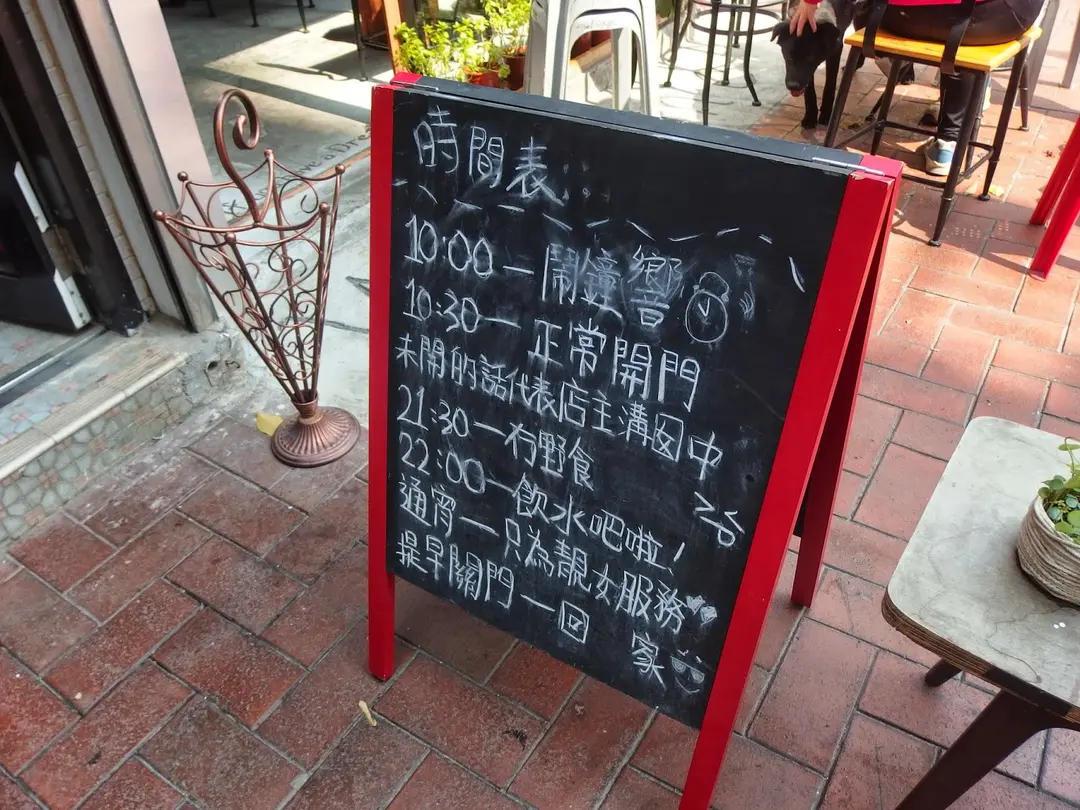 時間表：
10:00 — 鬧鐘響
10:30 — 正常開門
未開的話代表店主溝囡中
21:30 — 冇野食
22:00 — 飲水吧啦！
通宵 — 只為靚女服務
提早關門 — 回家